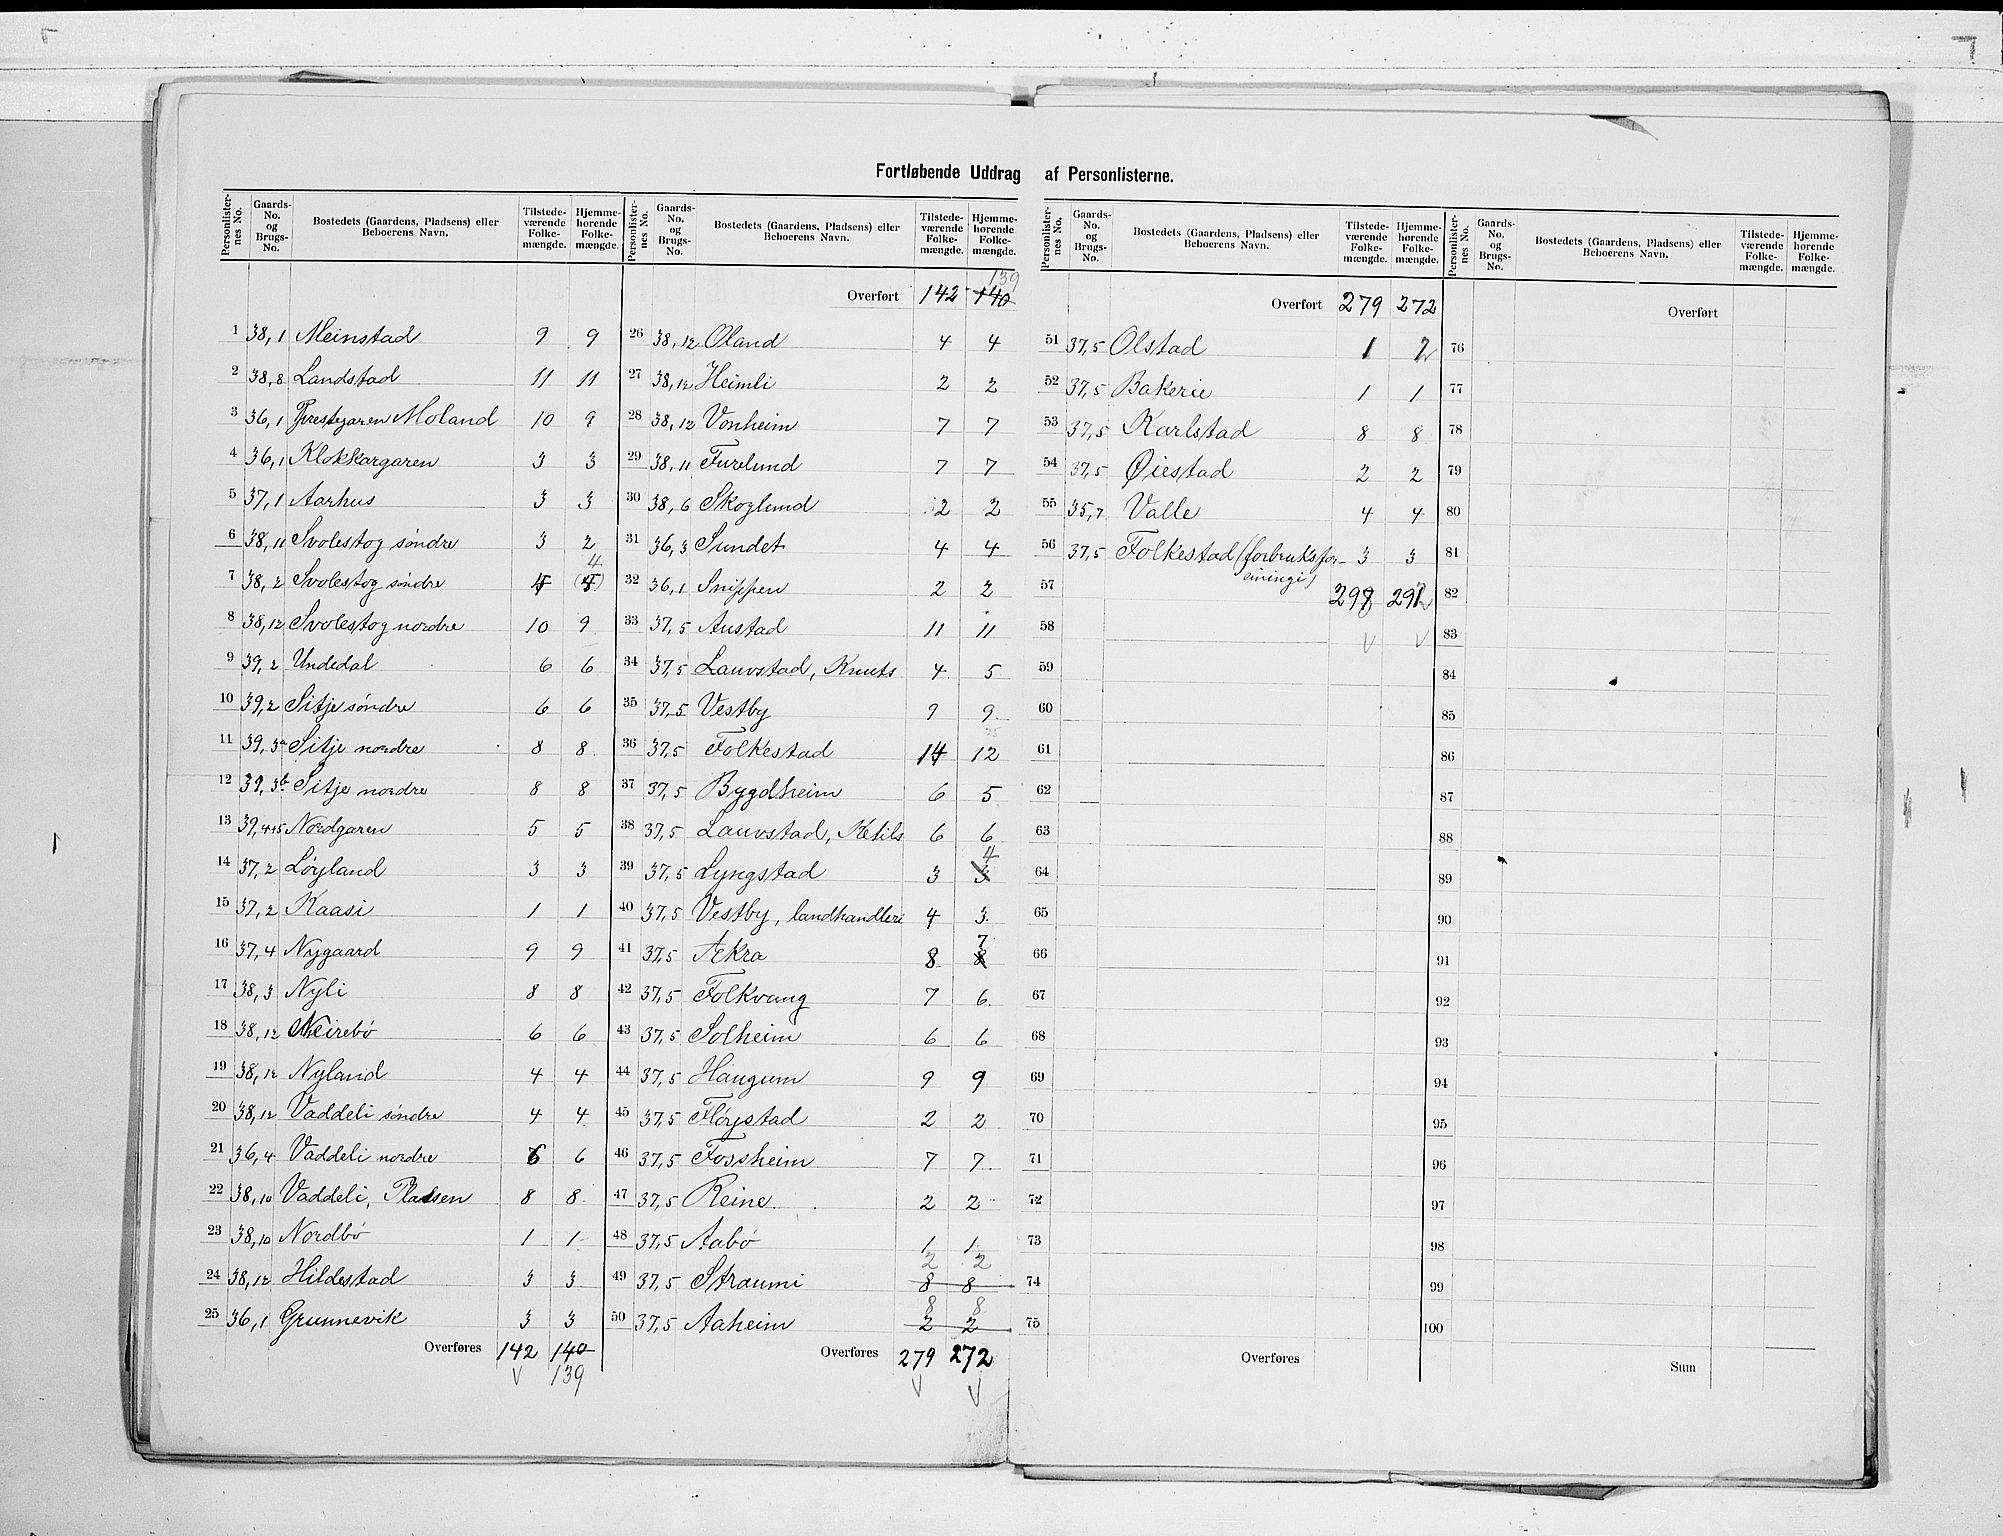 Fortløbende Uddrag af Personlisterne.
Personlisternes No. Gaards-No. og Brugs-No. Bostedets (Gaardens, Pladsens) eller Beboerens Navn. Tilstedeværende Folkemængde. Hjemmehørende Folkemængde.
1 38,1 Meinstad 9 9
2 38,8 Landstad 11 11
3 36,1 Prestgaren Moland 10 9
4 36,1 Klokkargaren 3 3
5 37,1 Aarhus 3 3
6 38,11 Svolestog søndre 3 2
7 38,2 Svolestog søndre 4 (5) 4
8 38,12 Svolestog nordre 10 9
9 39,2 Undedal 6 6
10 39,2 Sitje søndre 6 6
11 39,3a Sitje nordre 8 8
12 39,3b Sitje nordre 8 8
13 39,4+5 Nordgaren 5 5
14 37,2 Løyland 3 3
15 37,2 Kaasi 1 1
16 37,4 Nygaard 9 9
17 38,3 Nyli 8 8
18 38,12 Neirebø 6 6
19 38,12 Nyland 4 4
20 38,12 Vaddeli søndre 4 4
21 36,4 Vaddeli nordre 6 6
22 38,10 Vaddeli, Pladsen 8 8
23 38,10 Nordbø 1 1
24 38,12 Hildestad 3 3
25 36,1 Grunnevik 3 3
Overføres 142 140
139
Personlisternes No. Gaards-No. og Brugs-No. Bostedets (Gaardens, Pladsens) eller Beboerens Navn. Tilstedeværende Folkemængde. Hjemmehørende Folkemængde.
139
Overført 142 140
26 38,12 Oland 4 4
27 38,12 Heimli 2 2
28 38,12 Vonheim 7 7
29 38,11 Furelund 7 7
30 38,6 Skoglund 2 2
31 36,3 Sundet 4 4
32 36,1 Snippen 2 2
33 37,5 Austad 11 11
34 37,5 Lauvstad, Knuts 4 5
35 37,5 Vestby 9 9
36 37,5 Folkestad 14 12
37 37,5 Bygdheim 6 5
38 37,5 Lauvstad, Ketils 6 6
39 37,5 Lyngstad 3 3 4
40 37,5 Vestby, landhandleri 4 3
41 37,5 Aekra 8 8 7
42 37,5 Folkvang 7 6
43 37,5 Solheim 6 6
44 37,5 Haugum 9 9
45 37,5 Fløystad 2 2
46 37,5 Fossheim 7 7
47 37,5 Reine 2 2
48 37,5 Aabø 1 1
2 2
49 37,5 Straumi 8 8
8 8
50 37,5 Aaheim 2 2
Overføres 279 272
Personlisternes No. Gaards-No. og Brugs-No. Bostedets (Gaardens, Pladsens) eller Beboerens Navn. Tilstedeværende Folkemængde. Hjemmehørende Folkemængde.
Overført 279 272
51 37,5 Olstad 1 2
52 37,5 Bakerie 1 1
53 37,5 Karlstad 8 8
54 37,5 Øiestad 2 2
55 35,7 Valle 4 4
56 37,5 Folkestad (forbruksfor- 3 3
einingi)
57 292
58
59
60
61
62
63
64
65
66
67
68
69
70
71
72
73
74
75
Overføres
Personlisternes No. Gaards-No. og Brugs-No. Bostedets (Gaardens, Pladsens) eller Beboerens Navn. Tilstedeværende Folkemængde. Hjemmehørende Folkemængde.
Overført
76
77
78
79
80
81
82
83
84
85
86
87
88
89
90
91
92
93
94
95
96
97
98
99
100
Sum